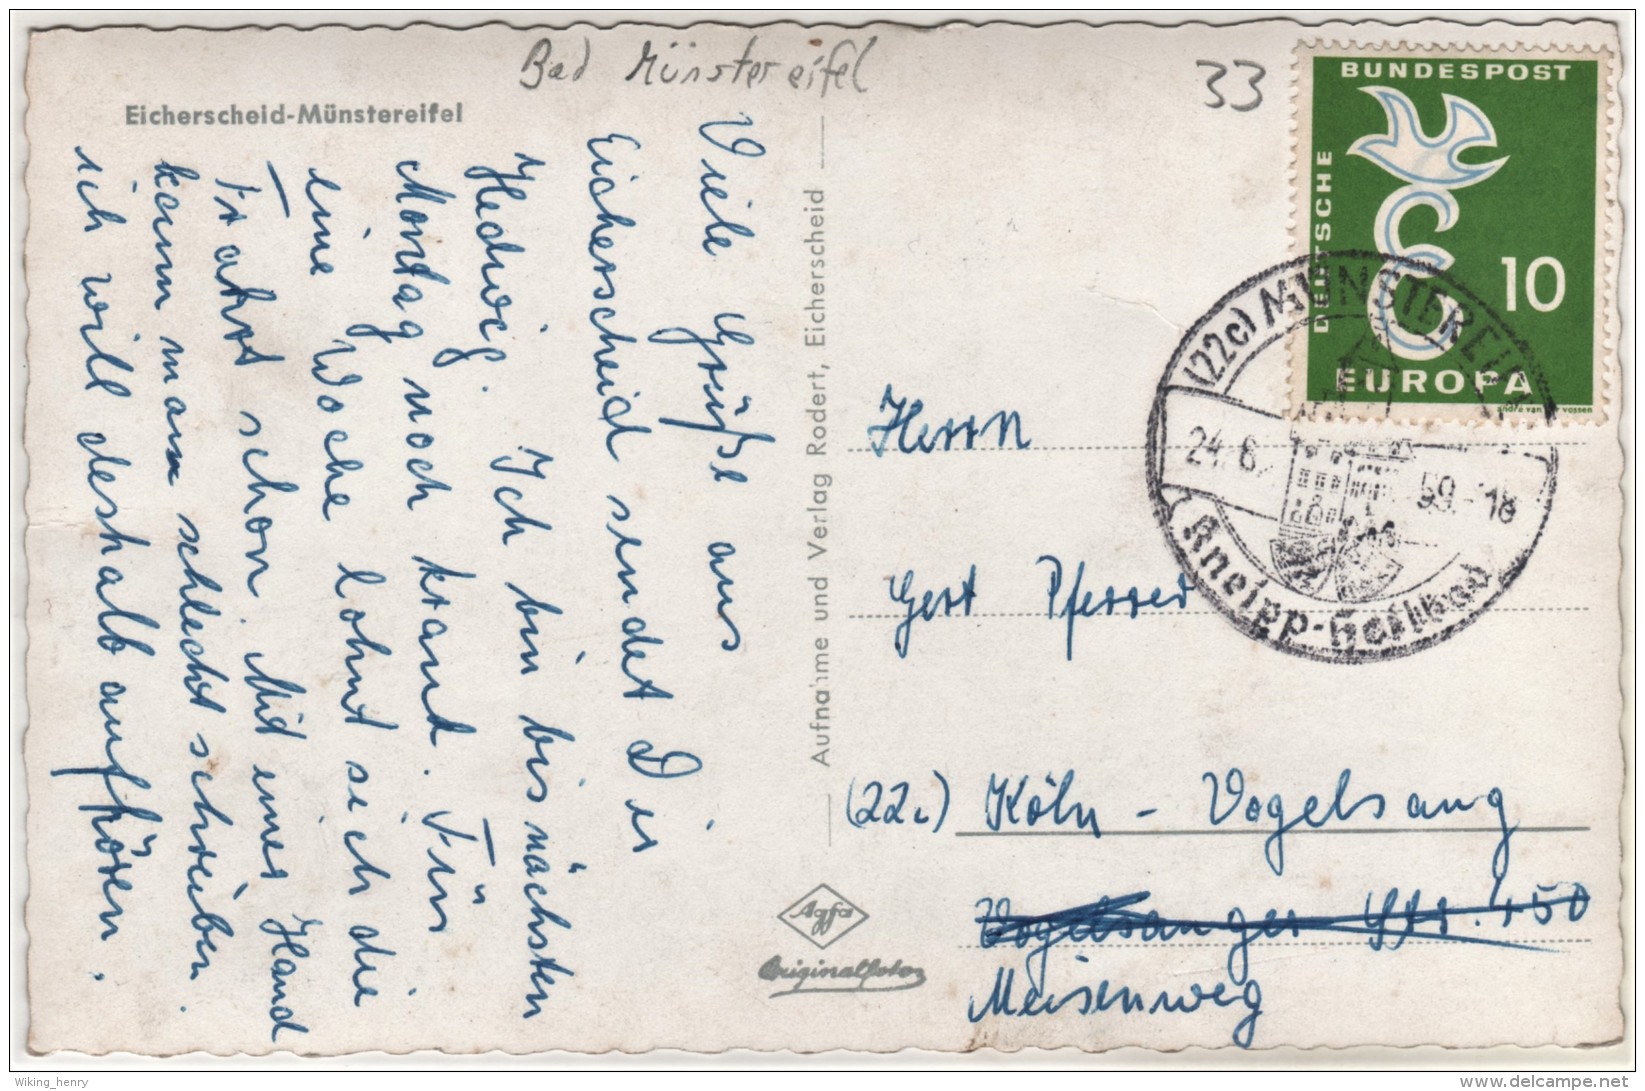 Bad Münstereifel
33
Eicherscheid-Münstereifel
Viele Grüße aus
Eicherscheid sendet Dir
Hedwig. Ich bin bis nächsten
Montag noch krank. Für
eine Woche lohnt sich die
Fahrt schon. Mit einer Hand
kann man schlecht schreiben.
ich will deshalb aufhören.
Aufnahme und Verlag Rodert, Eicherscheid
Agfa
Originalfoto
BUNDESPOST
DEUTSCHE
10
EUROPA
(22c) MÜNSTEREIFEL
24.6. 59.-18
Kneipp-Heilbad
Herrn
Gert Pferrer
(22c) Köln - Vogelsang
Vogelsanger Str. 450
Meisenweg
Wiking_henry
www.delcampe.net